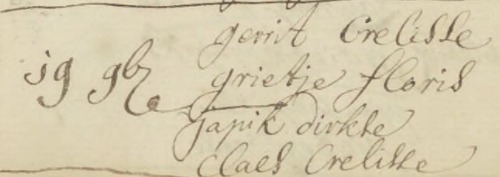 gerrit Crelisse
19 9br grietje floris
japik dirkse
Claes Crelisse